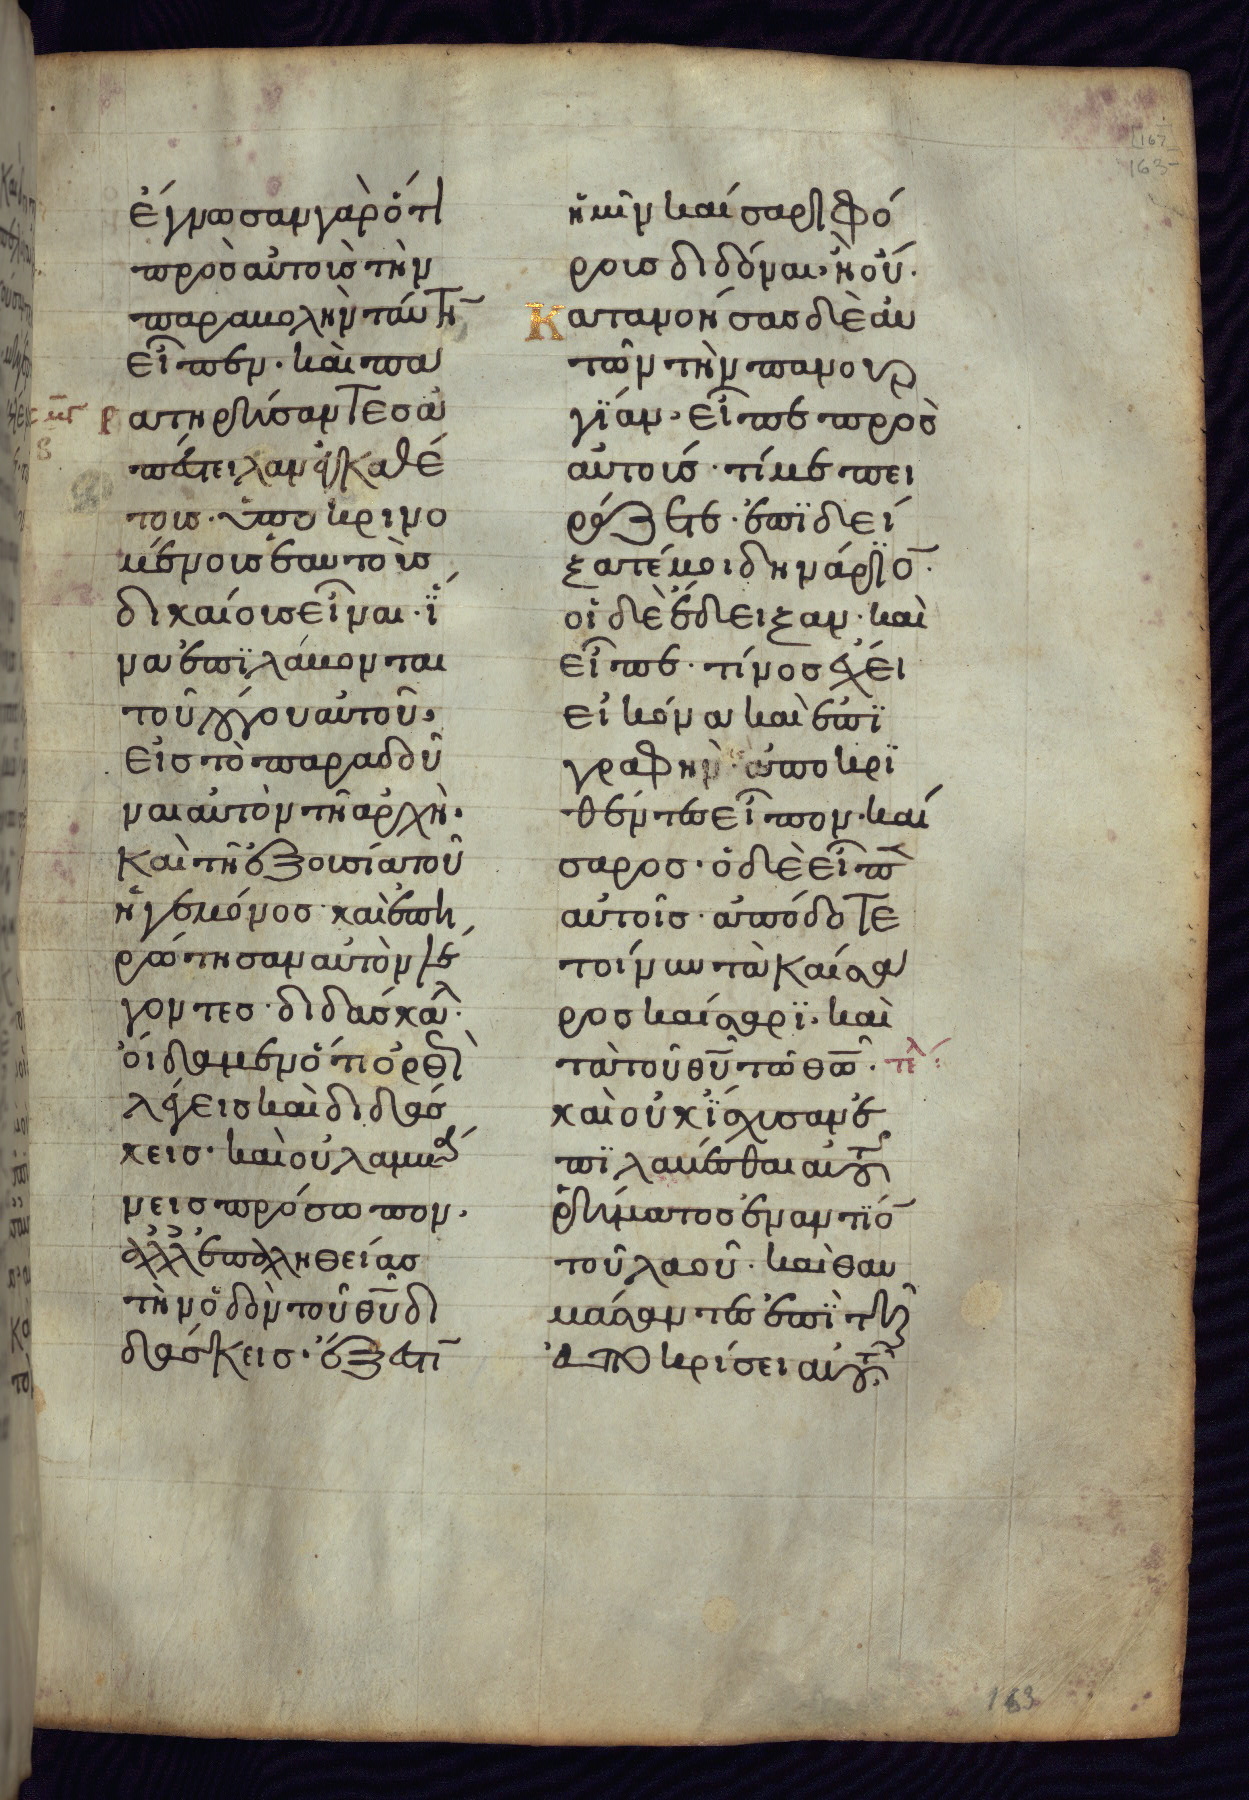 ἔγνωσαν γὰρ ὅτι
προσ αὐτοὺσ τὴν
παραβολὴν ταύτη
εἶπεν· καὶ πα
ρατηρήσαντεσ ἀ
πέστειλαν ἐγκαθέ
τουσ· ὑποκρινο
μένουσ ἑαυτοὺσ
δικαίουσ εἶναι· ἵ
να ἐπιλάβωνται
τοῦ λόγου αὐτοῦ·
εἰσ τὸ παραδοῦ
ναι αὐτὸν τῆ ἀρχῆ·
καὶ τῆ ἐξουσία τοῦ
ἡγεμόνοσ· καὶ ἐπη
ρώτησαν αὐτὸν λέ
γοντεσ· διδάσκαλ
οἴδαμεν ὅτι ὀρθῶ
λέγεισ καὶ διδάσ
κεισ· καὶ οὐ λαμβά
νεισ πρόσωπον·
ἀλλ ἐπ ἀληθείασ
τὴν ὁδὸν τοῦ θυ δι
δάσκεισ· ἔξεστι
ἡμῖν καίσαρι φό
ρουσ διδόναι· ἢ οὔ·
Κατανοήσασ δὲ αὐ
τῶν τὴν πανουρ
γίαν· εἶπε προσ
αὐτούσ· τί με πει
ράζετε· ἐπιδεί
ξατέ μοι δηνάριο
οἱ δὲ ἔδειξαν· καὶ
εἶπε· τίνοσ ἔχει
εἰκόνα καὶ ἐπι
γραφήν· ἀποκρι
θέντεσ εἶπον· καί
σαροσ· ὁ δὲ εἶπε
αὐτοῖσ· ἀπόδοτε
τοίνυν τὰ καίσα
ροσ καίσαρι· καὶ
τὰ τοῦ θυ τῶ θω· τλ
καὶ οὐκ ἴσχυσαν ἐ
πιλαβέσθαι αὐτοῦ
ῥήματοσ ἐναντίο
τοῦ λαοῦ· καὶ θαυ
μάσαντεσ ἐπὶ τῆ
ἀποκρίσει αὐτοῦ
163
163